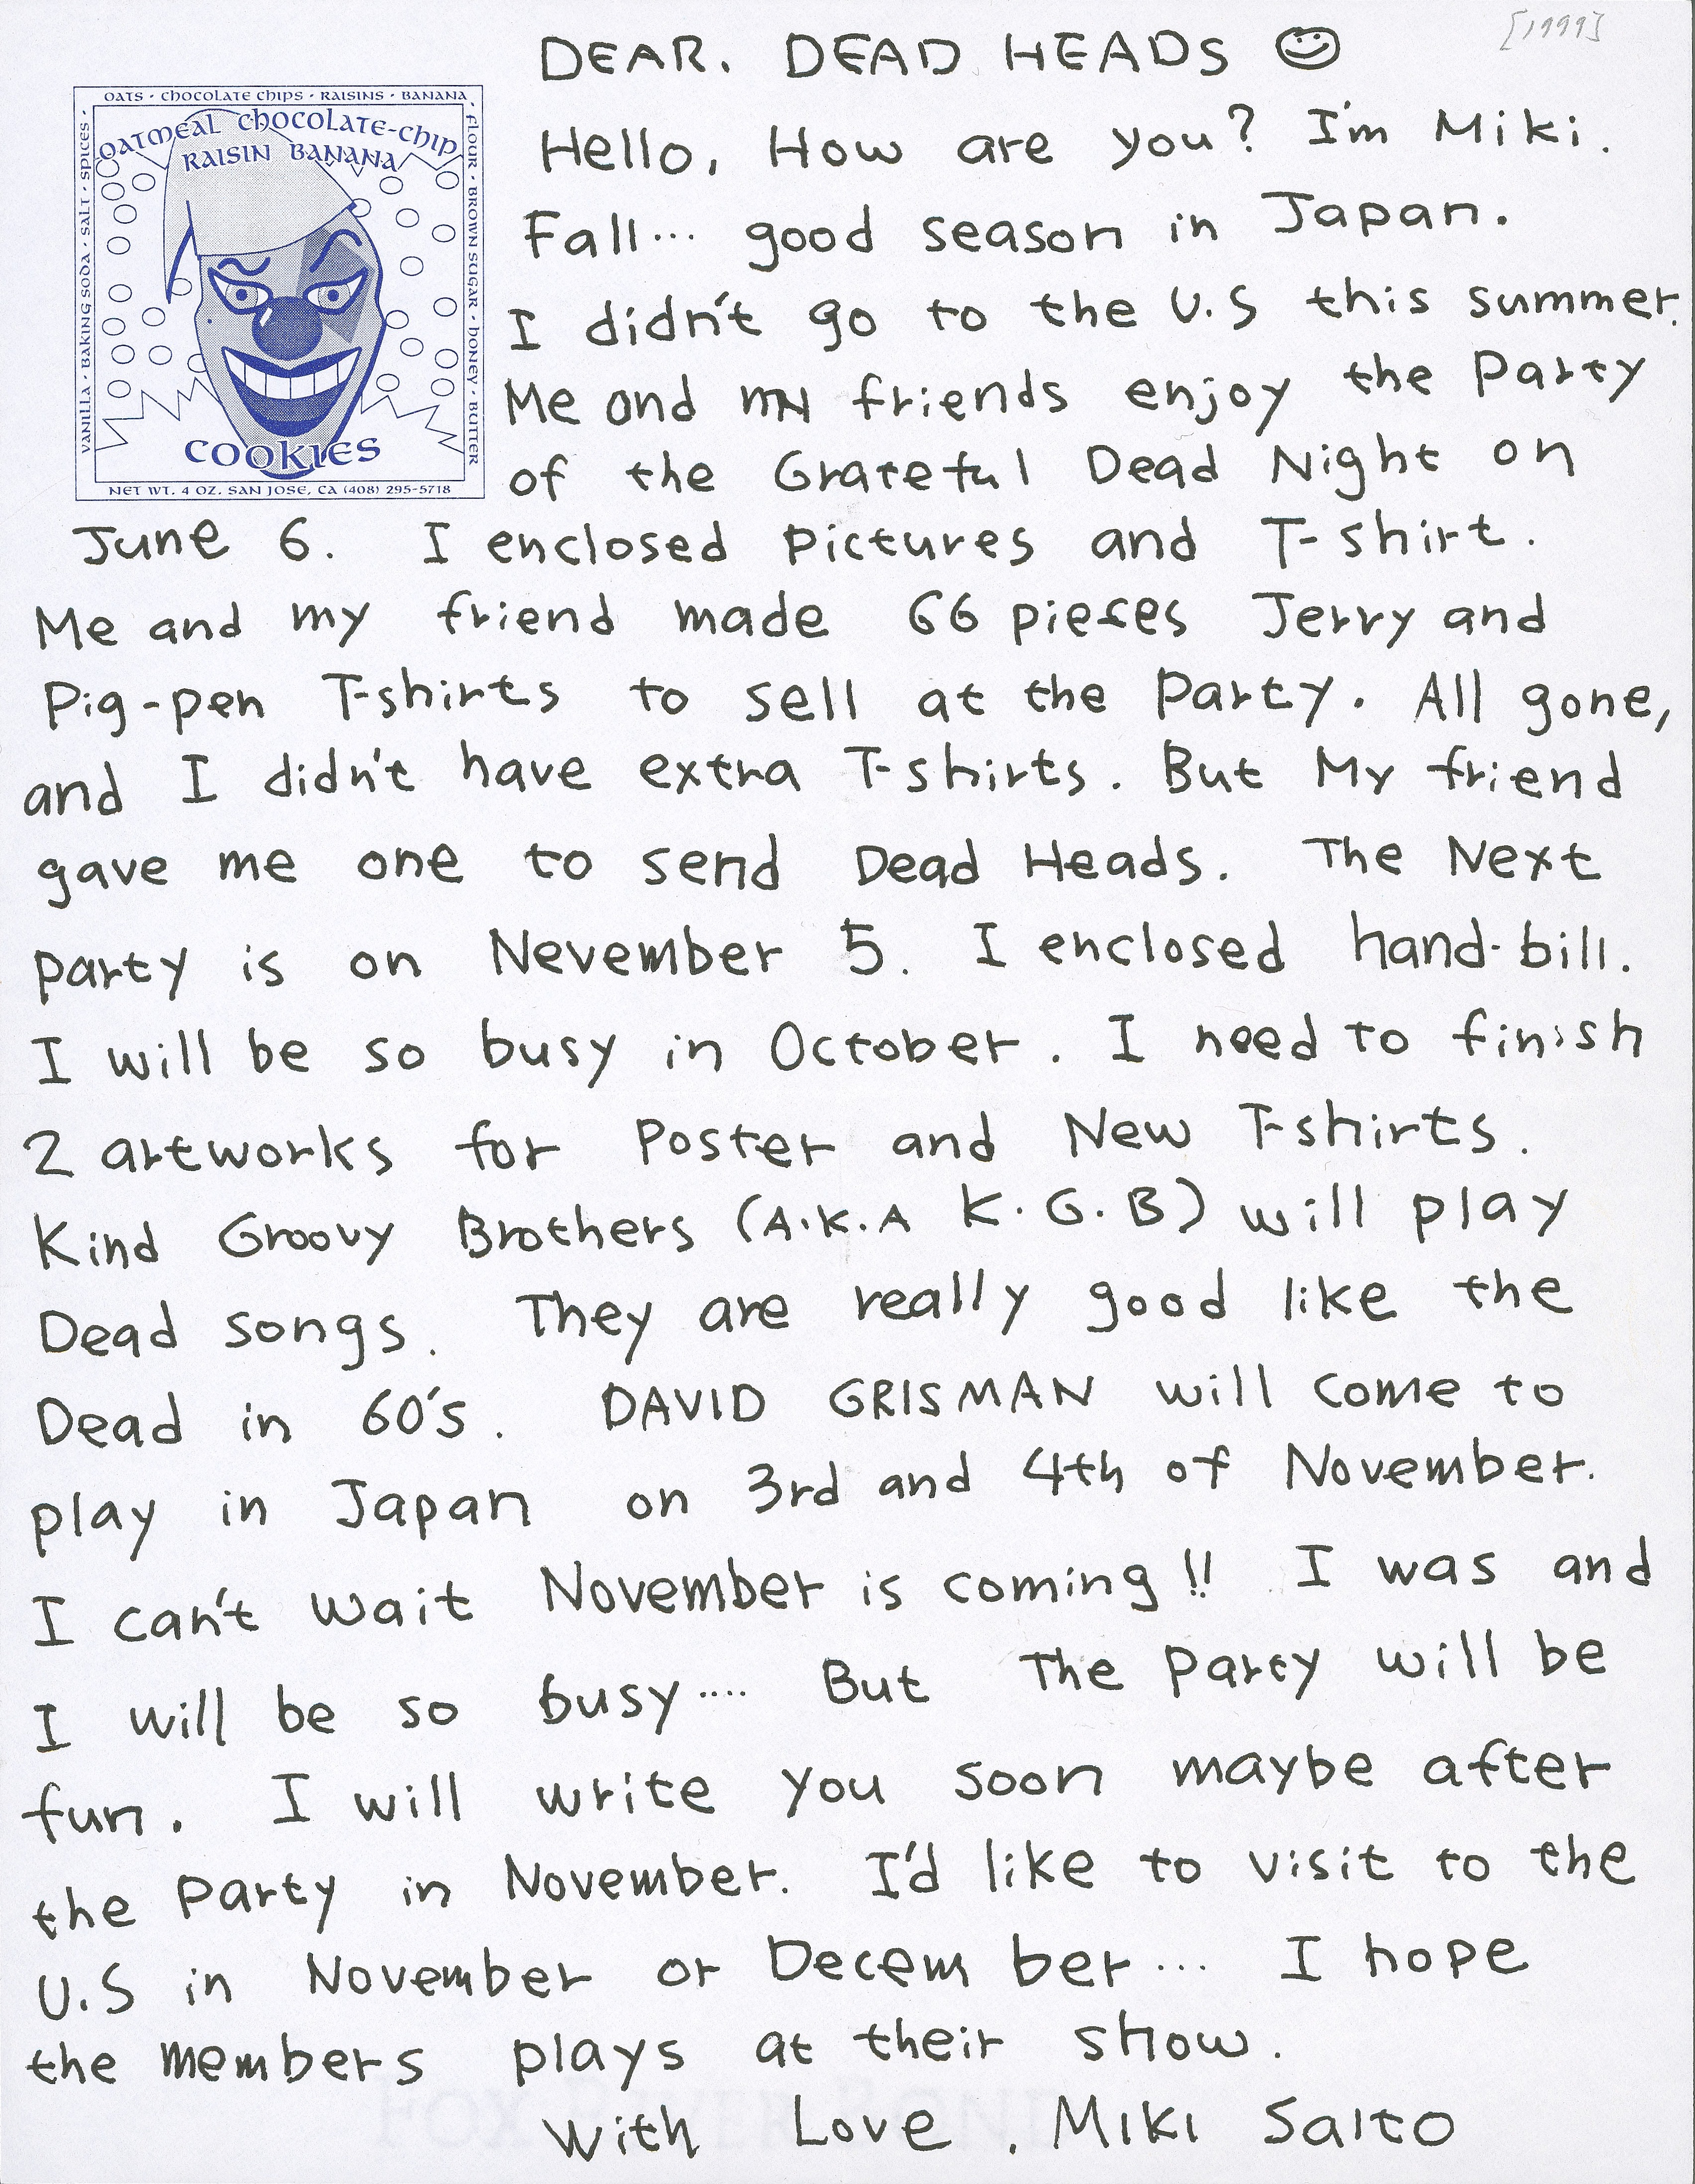 [1999]
DEAR. DEAD HEADS ☺
OATS · CHOCOLATE CHIPS · RAISINS · BANANA ·
FLOUR · BROWN SUGAR · HONEY · BUTTER
VANILLA · BAKING SODA · SALT · SPICES ·
OATMEAL CHOCOLATE-CHIP
RAISIN BANANA
COOKIES
NET WT. 4 OZ. SAN JOSE, CA (408) 295-5718
Hello, How are you? I'm Miki.
Fall... good season in Japan.
I didn't go to the U.S this summer.
Me and my friends enjoy the Party
of the Grateful Dead Night on
June 6. I enclosed pictures and T-shirt.
Me and my friend made 66 pieces Jerry and
Pig-pen T-shirts to sell at the Party. All gone,
and I didn't have extra T-shirts. But My friend
gave me one to send Dead Heads. The Next
party is on Nevember 5. I enclosed hand-bill.
I will be so busy in October. I need to finish
2 artworks for Poster and New T-shirts.
Kind Groovy Brothers (A.K.A K.G.B) will play
Dead songs. They are really good like the
Dead in 60's. DAVID GRISMAN will come to
play in Japan on 3rd and 4th of November.
I can't wait November is coming!! I was and
I will be so busy.... But The Party will be
fun. I will write you soon maybe after
the Party in November. I'd like to visit to the
U.S in November or December... I hope
the members plays at their show.
With Love, MIKI SAITO
FOX RIVER BOND